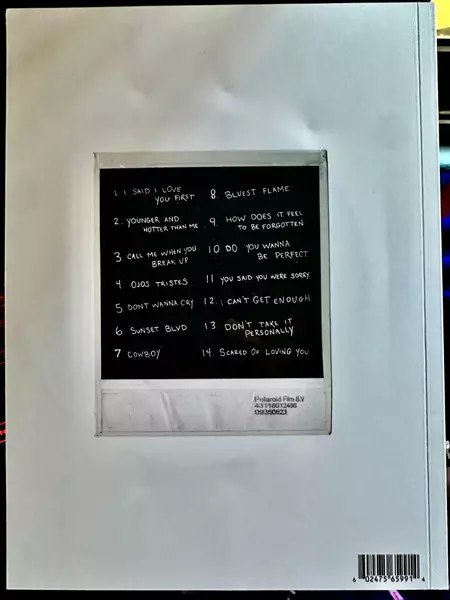 1. I SAID I LOVE
YOU FIRST
2. YOUNGER AND
HOTTER THAN ME
3 CALL ME WHEN YOU
BREAK UP
4 OJOS TRISTES
5 DONT WANNA CRY
6. SUNSET BLVD
7 COWBOY
8. BLUEST FLAME
9. HOW DOES IT FEEL
TO BE FORGOTTEN
10 DO YOU WANNA
BE PERFECT
11 YOU SAID YOU WERE SORRY
12. I CAN'T GET ENOUGH
13 DON'T TAKE IT
PERSONALLY
14. SCARED OF LOVING YOU
Polaroid Film B.V
43118012486
09350623
6 02475 65991 4